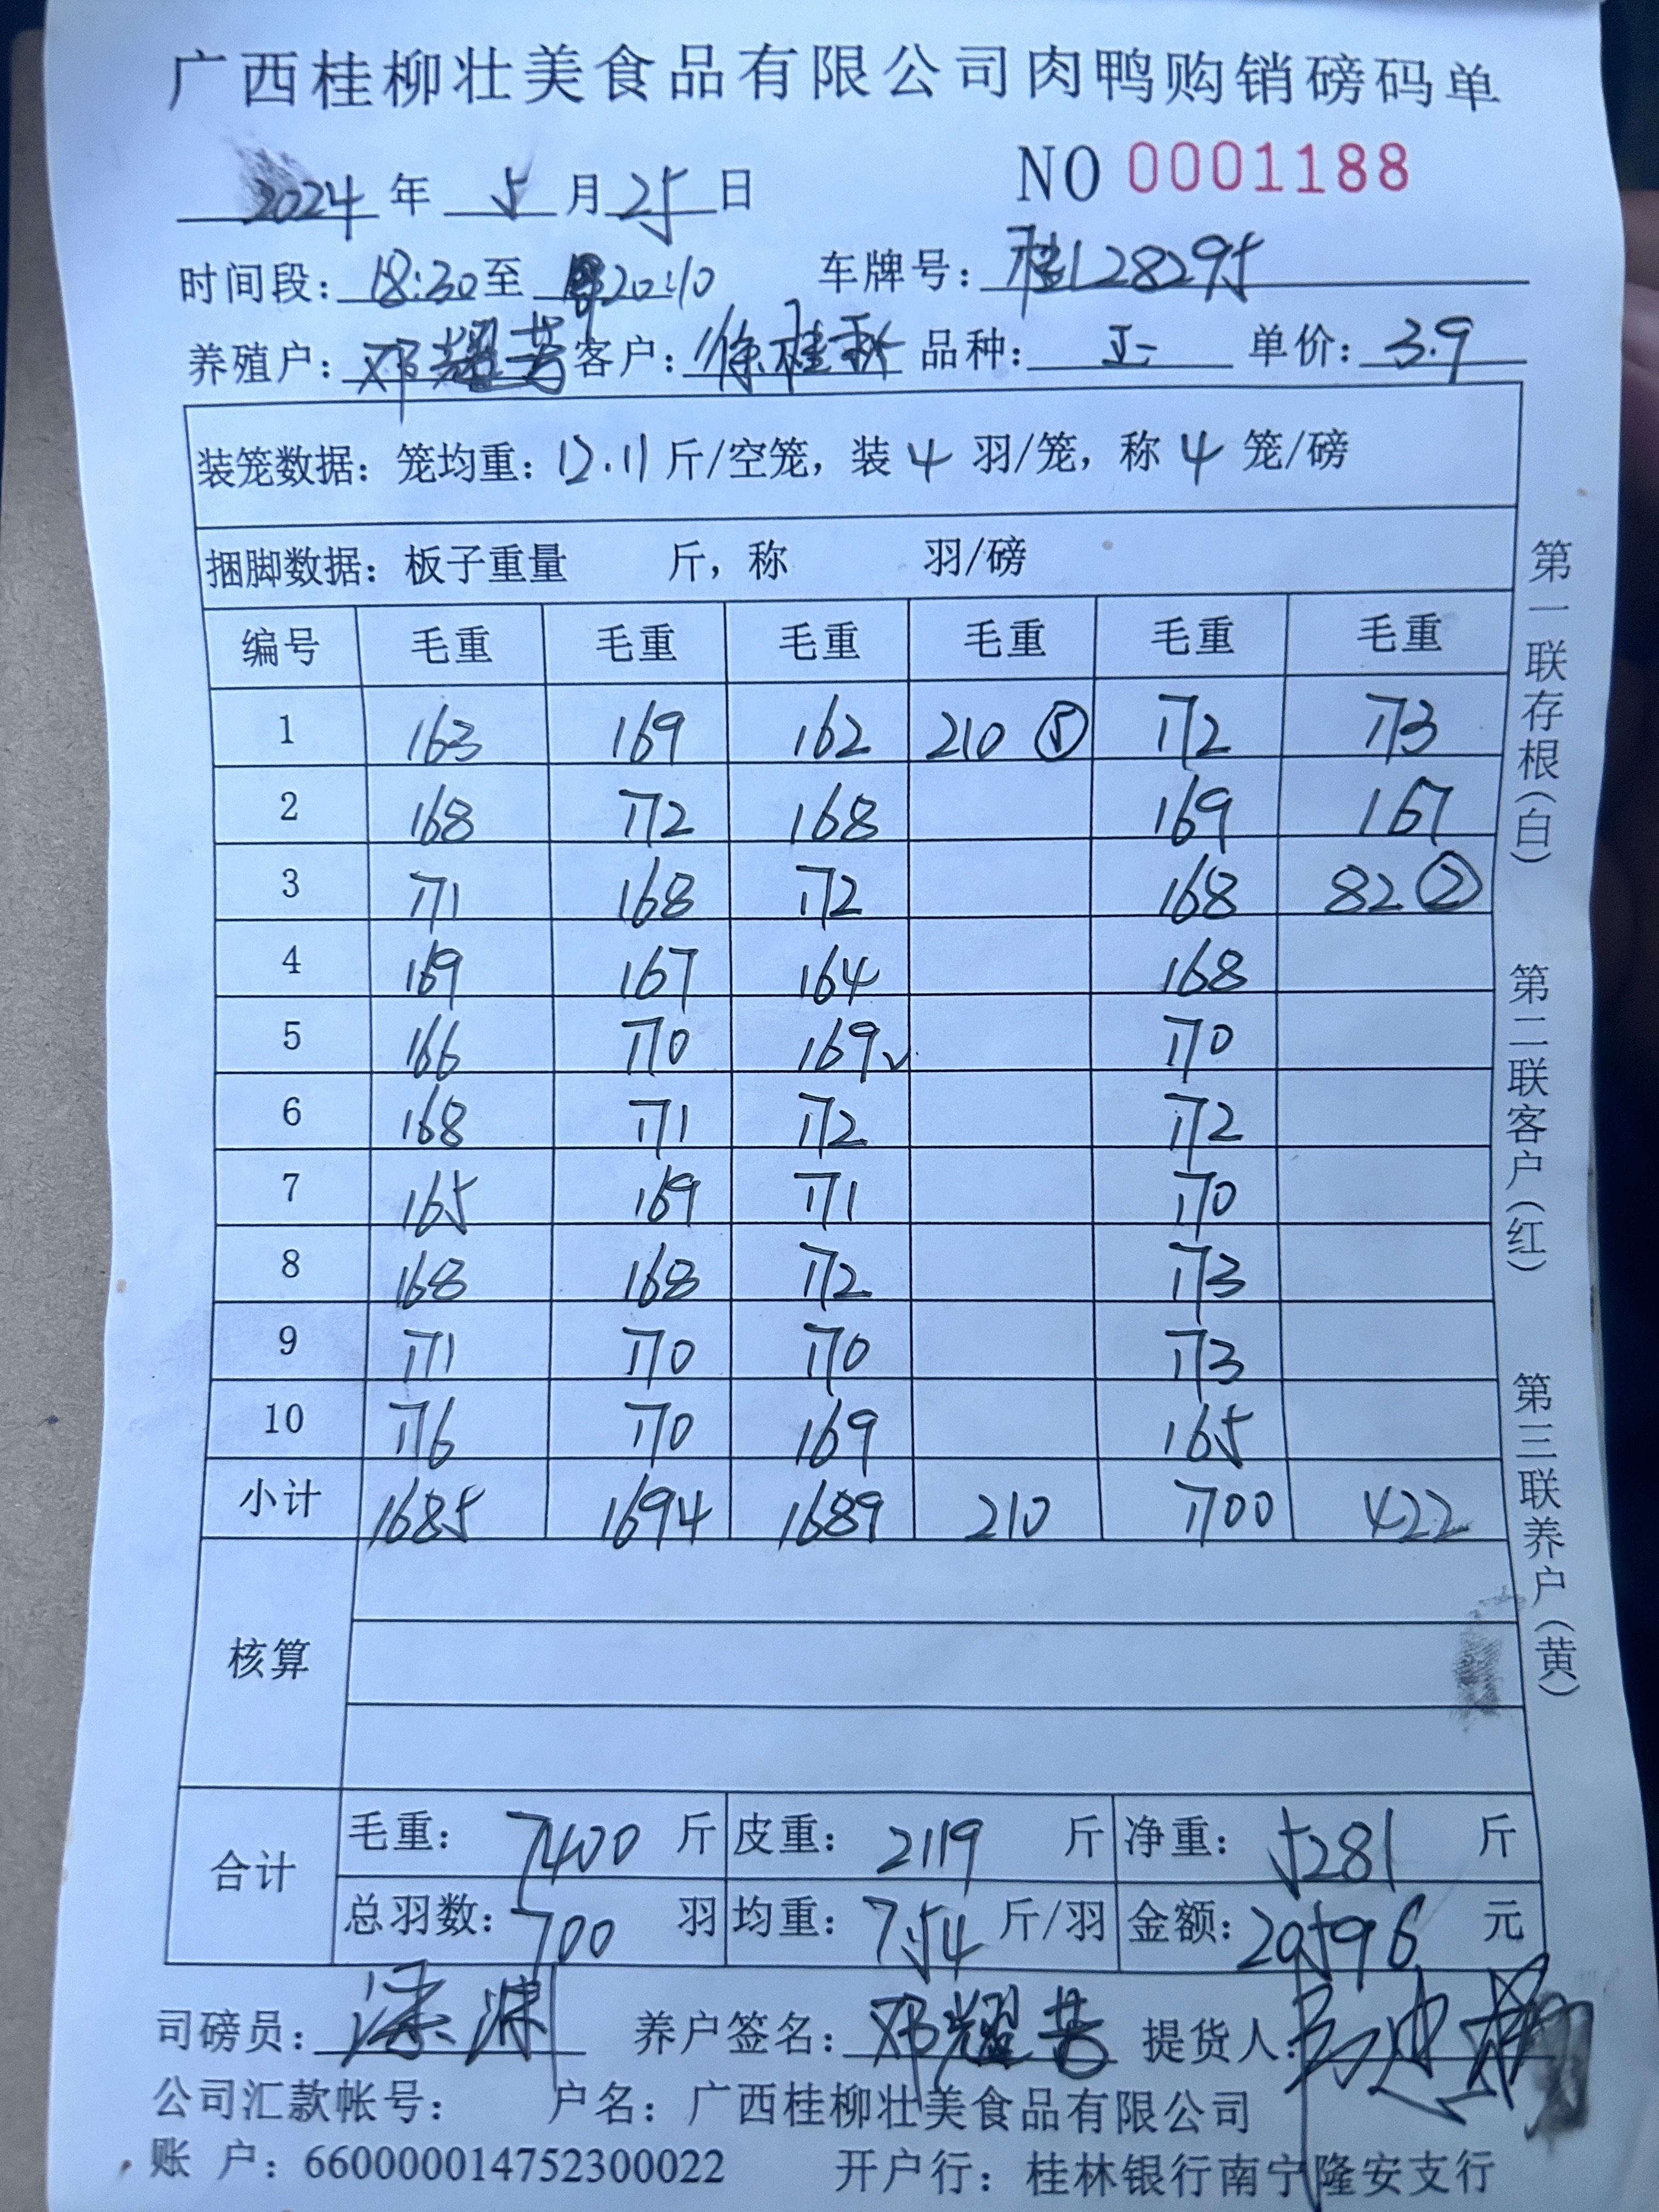 广西桂柳壮美食品有限公司肉鸭购销磅码单
NO 0001188
2024 年 5 月 25 日
时间段：18:30 至 20:10 车牌号：桂L2829
养殖户：邓耀芳 客户：徐桂秋 品种： 单价：3.9
装笼数据：笼均重：12.11 斤/空笼，装 4 羽/笼，称 4 笼/磅
捆脚数据：板子重量 斤，称 羽/磅
编号 毛重 毛重 毛重 毛重 毛重 毛重
1 163 169 162 210 ⑤ 172 173
2 168 172 168 169 167
3 171 168 172 168 82 ②
4 169 167 164 168
5 166 170 169✓ 170
6 168 171 172 172
7 165 169 171 170
8 168 168 172 173
9 171 170 170 173
10 176 170 169 165
小计 1685 1694 1689 210 1700 422
核算
合计
毛重：7400 斤 皮重：2119 斤 净重：5281 斤
总羽数：700 羽 均重：7.54 斤/羽 金额：20596 元
司磅员： 养户签名：邓耀芳 提货人：
公司汇款帐号： 户名：广西桂柳壮美食品有限公司
账 户：660000014752300022 开户行：桂林银行南宁隆安支行
第一联存根（白） 第二联客户（红） 第三联养户（黄）